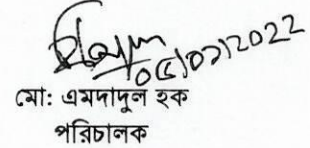 ০৫/০২/2022
মো: এমদাদুল হক
পরিচালক